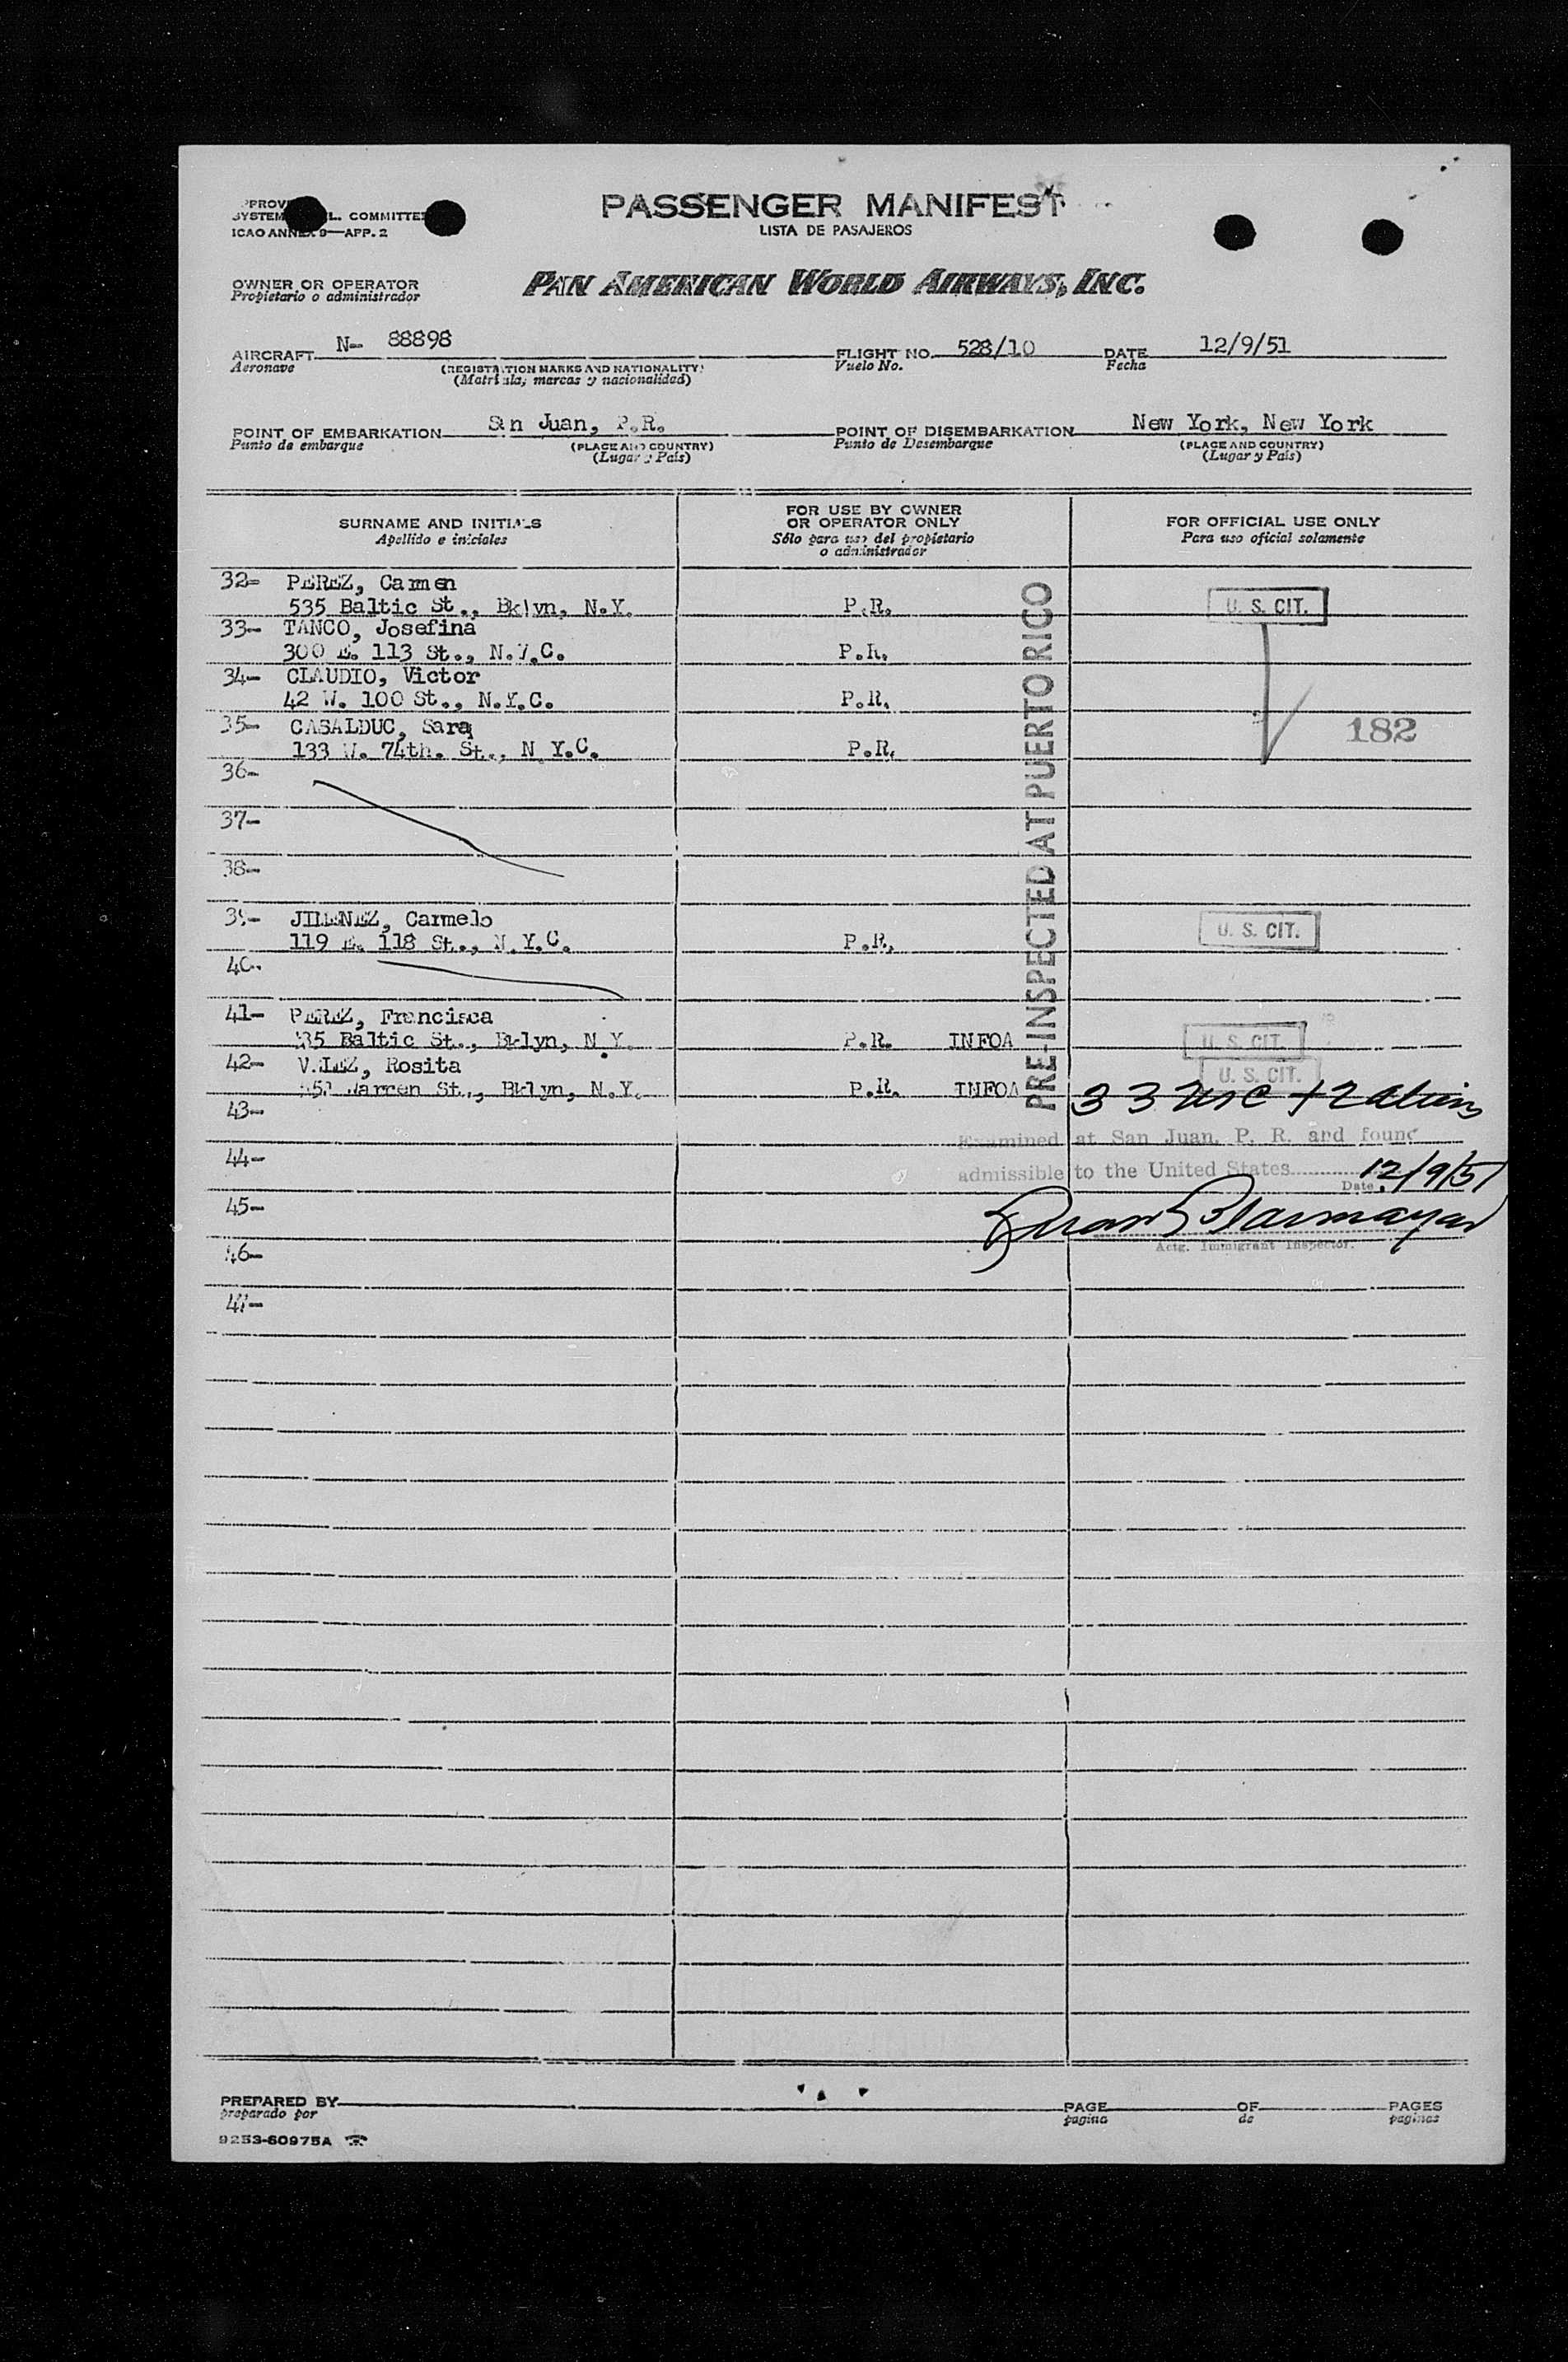 PASSENGER MANIFEST
LISTA DE PASAJEROS
L. COMMITTEE
ICAO ANNEX 9—APP. 2
OWNER OR OPERATOR
Propietario o administrador
PAN AMERICAN WORLD AIRWAYS, INC.
AIRCRAFT N- 88898 FLIGHT NO. 528/10 DATE 12/9/51
Aeronave (REGISTRATION MARKS AND NATIONALITY) Vuelo No. Fecha
(Matricula, marcas y nacionalidad)
POINT OF EMBARKATION San Juan, P.R. POINT OF DISEMBARKATION New York, New York
Punto de embarque (PLACE AND COUNTRY) Punto de Desembarque (PLACE AND COUNTRY)
(Lugar y País) (Lugar y País)
SURNAME AND INITIALS FOR USE BY OWNER OR OPERATOR ONLY FOR OFFICIAL USE ONLY
Apellido e iniciales Sólo para uso del propietario o administrador Para uso oficial solamente
32- PEREZ, Carmen
535 Baltic St., Bklyn, N.Y. P.R. U. S. CIT.
33- TANCO, Josefina
300 E. 113 St., N.Y.C. P.R.
34- CLAUDIO, Victor
42 W. 100 St., N.Y.C. P.R.
35- CASALDUC, Sara 182
133 W. 74th. St., N Y.C. P.R.
36-
37-
38-
39- JIMENEZ, Carmelo
119 E. 118 St., N.Y.C. P.R. U. S. CIT.
40-
41- PEREZ, Francisca
35 Baltic St., Bklyn, N.Y. P.R. INFOA U. S. CIT.
42- VELEZ, Rosita U. S. CIT.
Warren St., Bklyn, N.Y. P.R. INFOA
PRE-INSPECTED AT PUERTO RICO
43- 33 USC + 2 aliens
Examined at San Juan, P. R. and found
44- admissible to the United States 12/9/51
Date
45-
Actg. Immigrant Inspector.
46-
47-
PREPARED BY PAGE OF PAGES
preparado por pagina de paginas
9253-60975A